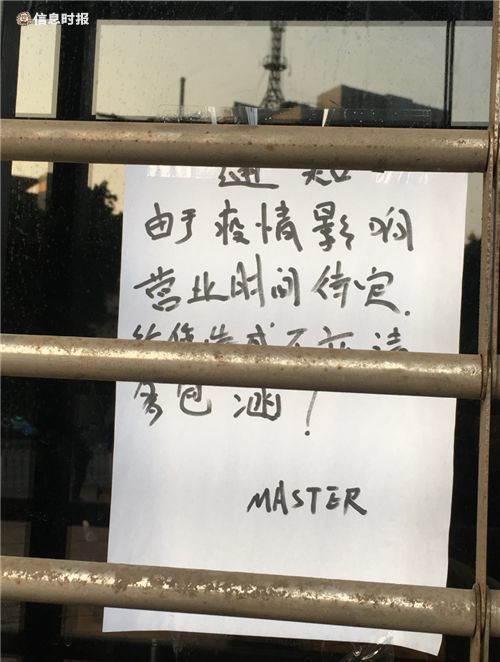 信息时报
通知
由于疫情影响
营业时间待定.
给您造成不应请
多包涵!
MASTER